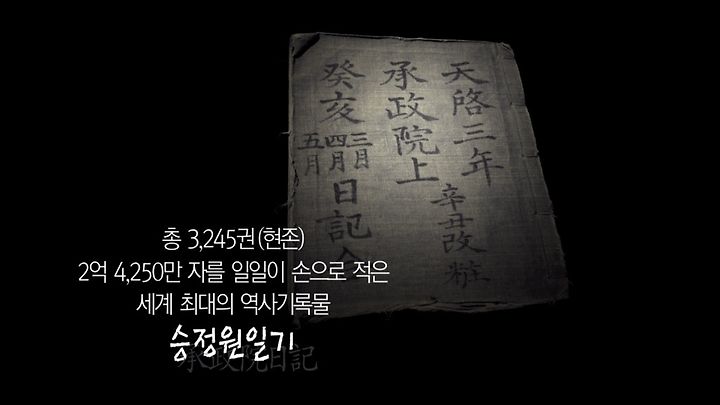 天啓三年
辛丑改粧
承政院上
癸亥
三月
四月
五月
日記
총 3,245권(현존)
2억 4,250만 자를 일일이 손으로 적은
세계 최대의 역사기록물
승정원일기
承政院日記